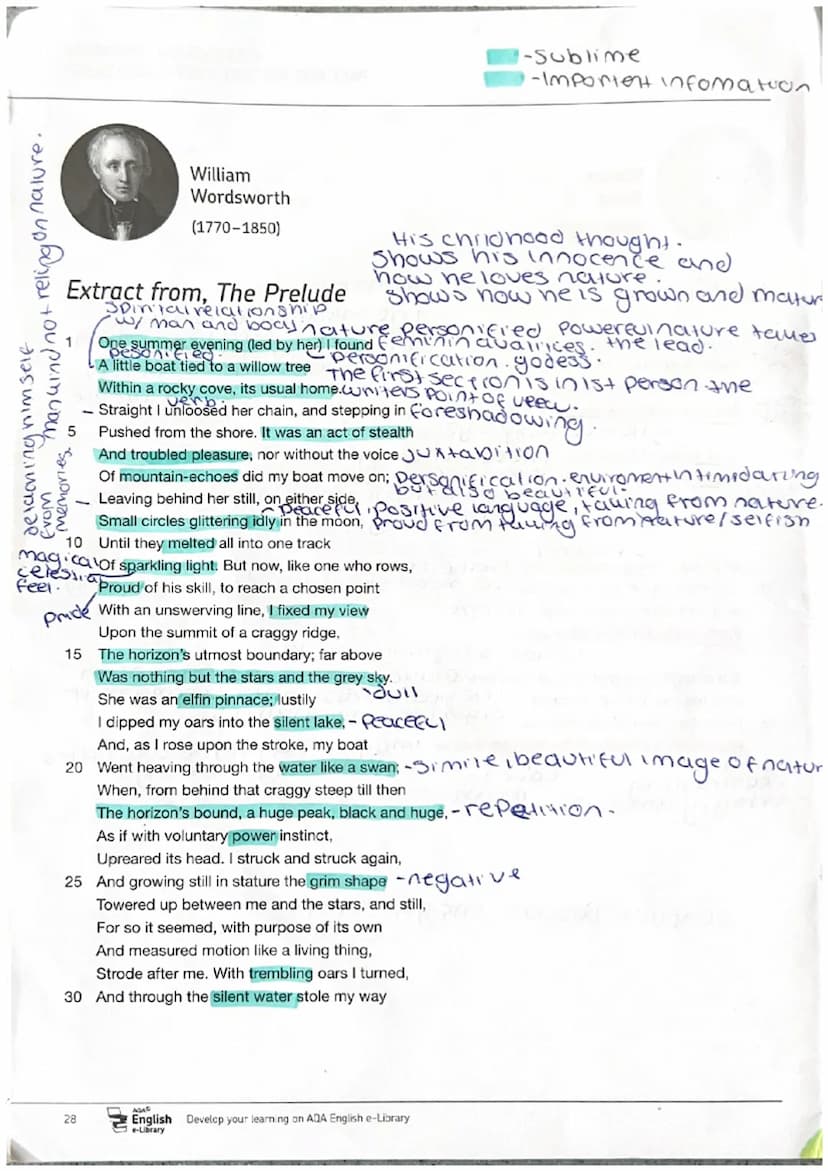 -Sublime
-Importent infomation
William
Wordsworth
(1770–1850)
His childhood thought.
shows his innocence and
how he loves nature.
shows how he is grown and matur
Extract from, The Prelude
relationship
w/ man and body
nature personified powerful nature takes
the lead.
1 One summer evening (led by her) I found
pesonified.
personification. godess.
A little boat tied to a willow tree
The first section is in 1st person the
Within a rocky cove, its usual home.
writers point of veew.
verb.
Straight I unloosed her chain, and stepping in
foreshadowing.
5 Pushed from the shore. It was an act of stealth
And troubled pleasure, nor without the voice
Of mountain-echoes did my boat move on;
personification. enviroment intimidating
but also beautiful.
Leaving behind her still, on either side,
peaceful, positive language, taking from nature.
Small circles glittering idly in the moon,
proud from taking from nature/selfish
10 Until they melted all into one track
Of sparkling light. But now, like one who rows,
magical
feel.
Proud of his skill, to reach a chosen point
pride
With an unswerving line, I fixed my view
Upon the summit of a craggy ridge,
15 The horizon's utmost boundary; far above
Was nothing but the stars and the grey sky.
dull
She was an elfin pinnace; lustily
I dipped my oars into the silent lake, - peaceful
And, as I rose upon the stroke, my boat
20 Went heaving through the water like a swan; -simile, beautiful image of natur
When, from behind that craggy steep till then
The horizon's bound, a huge peak, black and huge, -repetition.
As if with voluntary power instinct,
Upreared its head. I struck and struck again,
25 And growing still in stature the grim shape -negative
Towered up between me and the stars, and still,
For so it seemed, with purpose of its own
And measured motion like a living thing,
Strode after me. With trembling oars I turned,
30 And through the silent water stole my way
himself
from
memories.
mankind not reling on nature.
28
AQA
English
e-Library
Develop your learning on AQA English e-Library